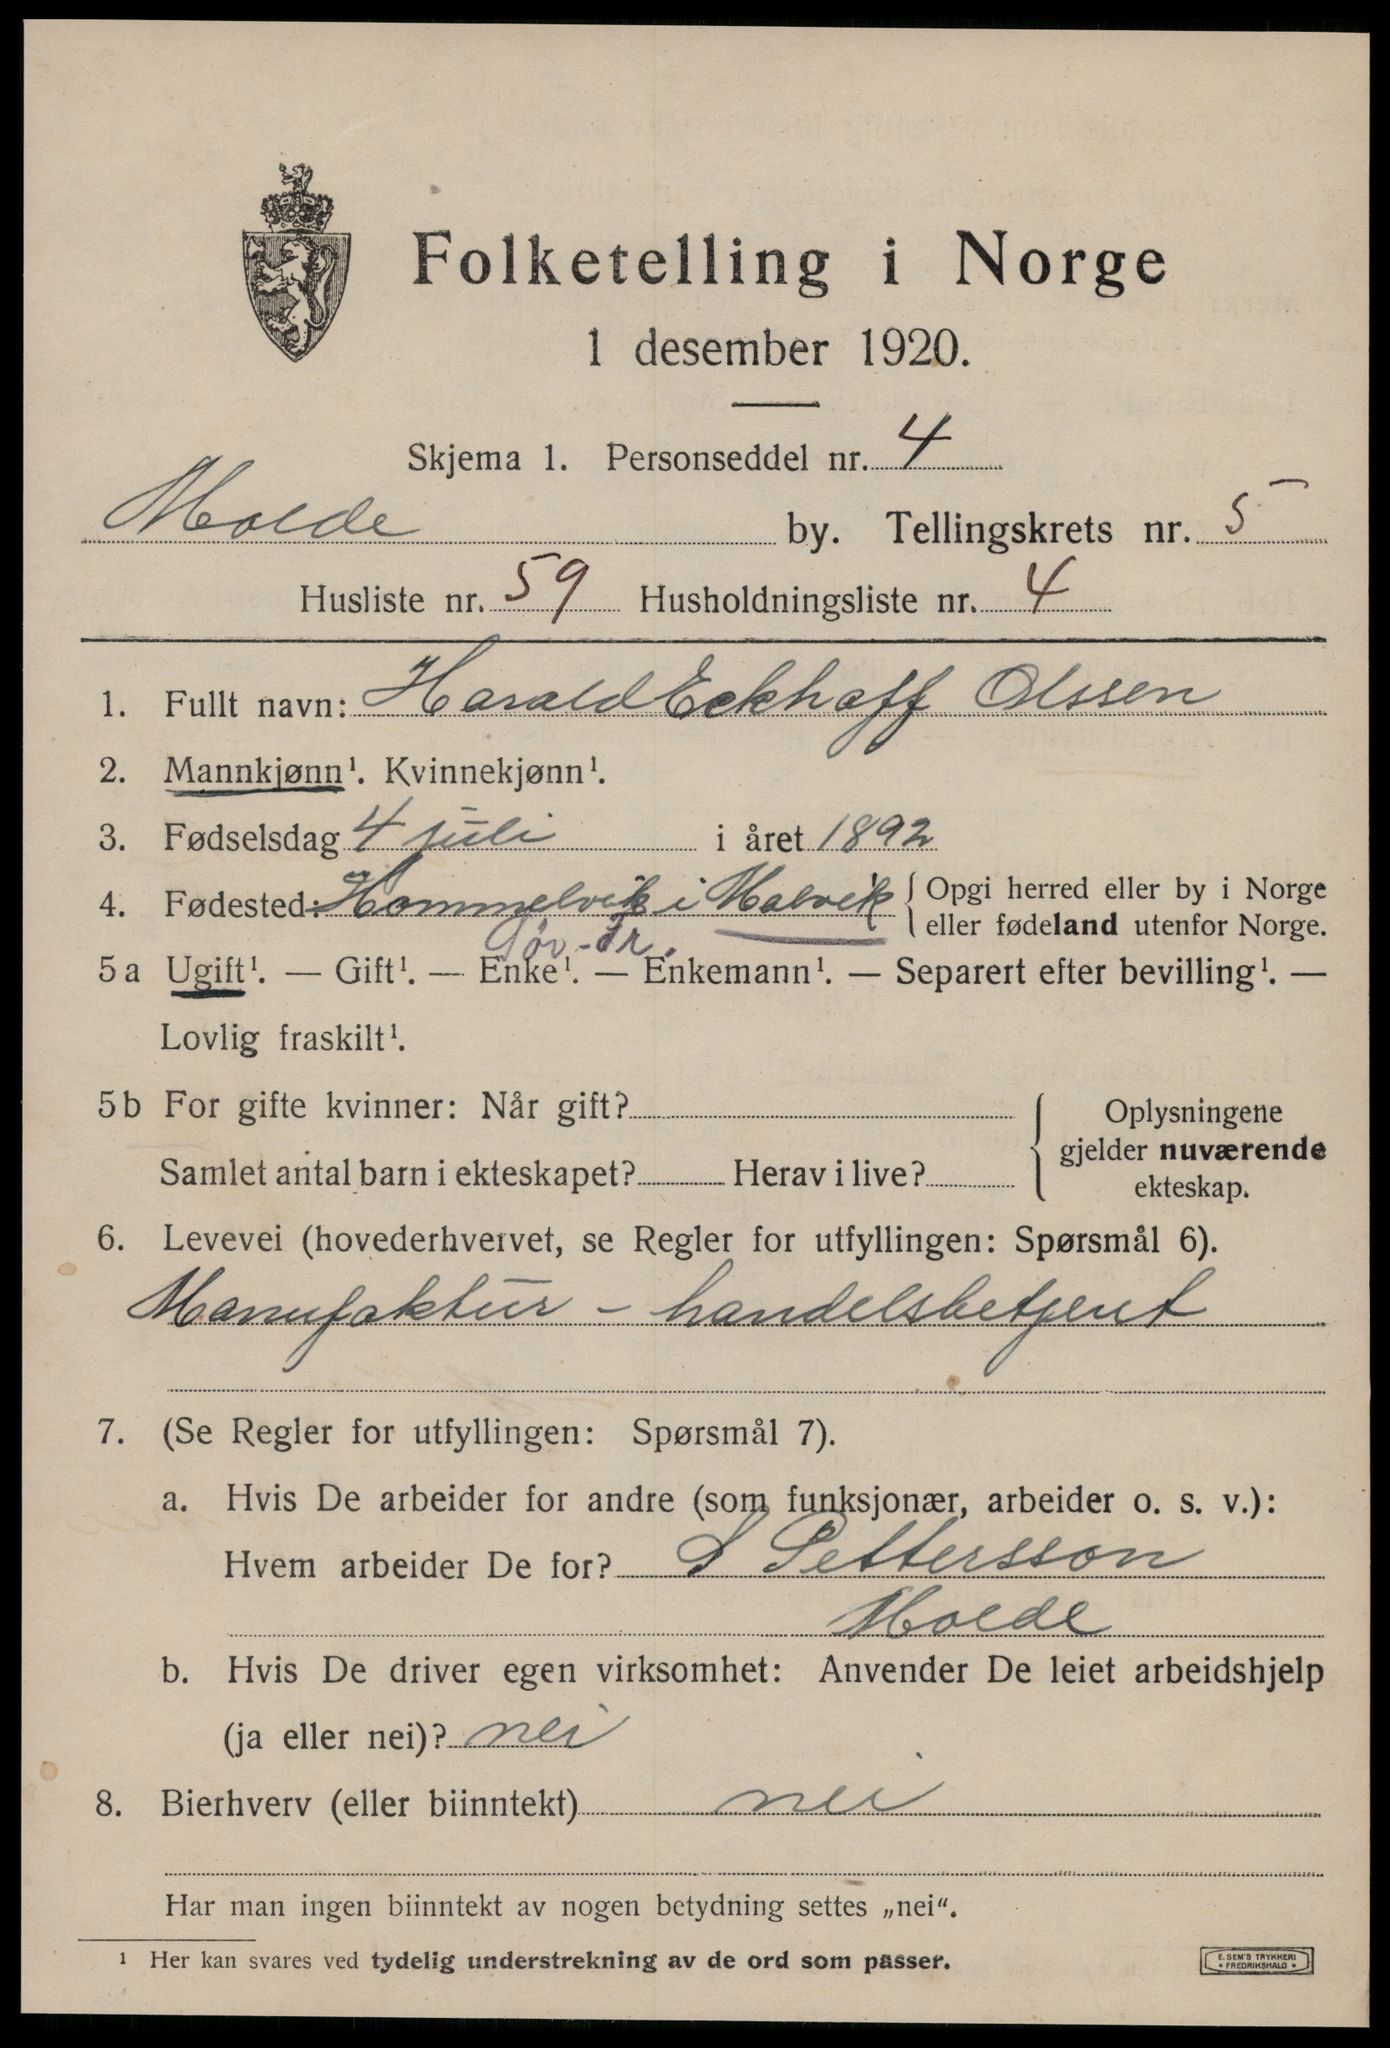 Folketelling i Norge
1 desember 1920.
Skjema 1. Personseddel nr. 4
Molde by. Tellingskrets nr. 5
Husliste nr. 59 Husholdningsliste nr. 4
1. Fullt navn: Harald Eckhoff Olssen
2. Mannkjønn¹. Kvinnekjønn¹.
3. Fødselsdag 4 juli i året 1892
4. Fødested: Hommelvik i Malvik { Opgi herred eller by i Norge
eller fødeland utenfor Norge.
Sør-Tr.
5 a Ugift¹. — Gift¹. — Enke¹. — Enkemann¹. — Separert efter bevilling¹. —
Lovlig fraskilt¹.
5 b For gifte kvinner: Når gift?
Samlet antal barn i ekteskapet? Herav i live?
Oplysningene
gjelder nuværende
ekteskap.
6. Levevei (hovederhvervet, se Regler for utfyllingen: Spørsmål 6).
Manufaktur - handelsbetjent
7. (Se Regler for utfyllingen: Spørsmål 7).
a. Hvis De arbeider for andre (som funksjonær, arbeider o. s. v.):
Hvem arbeider De for? Pettersson
Molde
b. Hvis De driver egen virksomhet: Anvender De leiet arbeidshjelp
(ja eller nei)? nei
8. Bierhverv (eller biinntekt) nei
Har man ingen biinntekt av nogen betydning settes „nei“.
¹ Her kan svares ved tydelig understrekning av de ord som passer.
E. SEM'S TRYKKERI
• FREDRIKSHALD •